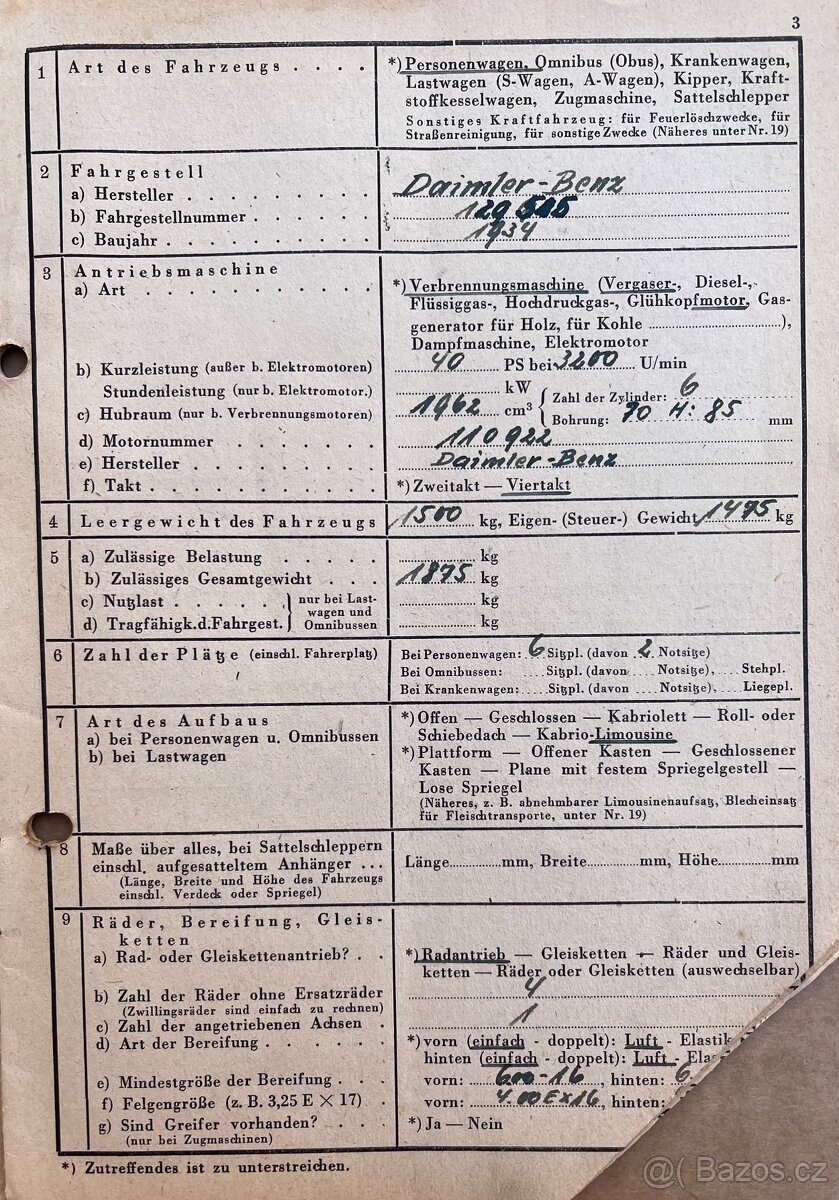 3
1 Art des Fahrzeugs . . . . *) Personenwagen, Omnibus (Obus), Krankenwagen,
Lastwagen (S-Wagen, A-Wagen), Kipper, Kraft-
stoffkesselwagen, Zugmaschine, Sattelschlepper
Sonstiges Kraftfahrzeug: für Feuerlöschzwecke, für
Straßenreinigung, für sonstige Zwecke (Näheres unter Nr. 19)
2 Fahrgestell
a) Hersteller . . . . . . . . . Daimler-Benz
b) Fahrgestellnummer . . . . . .
c) Baujahr . . . . . . . . . . 1934
3 Antriebsmaschine
a) Art . . . . . . . . . . . *) Verbrennungsmaschine (Vergaser-, Diesel-,
Flüssiggas-, Hochdruckgas-, Glühkopfmotor, Gas-
generator für Holz, für Kohle ..............),
Dampfmaschine, Elektromotor
b) Kurzleistung (außer b. Elektromotoren) 40 PS bei 3200 U/min
Stundenleistung (nur b. Elektromotor.) ............ kW
c) Hubraum (nur b. Verbrennungsmotoren) 1962 cm³ { Zahl der Zylinder: 6
Bohrung: 70 H: 85 mm
d) Motornummer . . . . . . 110922
e) Hersteller . . . . . . . . Daimler-Benz
f) Takt . . . . . . . . . . *) Zweitakt — Viertakt
4 Leergewicht des Fahrzeugs 1500 kg, Eigen- (Steuer-) Gewicht 1475 kg
5 a) Zulässige Belastung . . . . . ............ kg
b) Zulässiges Gesamtgewicht . . . 1875 kg
c) Nutzlast . . . . . } nur bei Last- ............ kg
wagen und
d) Tragfähigk.d.Fahrgest. Omnibussen ............ kg
6 Zahl der Plätze (einschl. Fahrerplatz) Bei Personenwagen: 6 Sitzpl. (davon 2 Notsitze)
Bei Omnibussen: ....Sitzpl. (davon ....Notsitze), ....Stehpl.
Bei Krankenwagen: ....Sitzpl. (davon ....Notsitze), ....Liegepl.
7 Art des Aufbaus *) Offen — Geschlossen — Kabriolett — Roll- oder
a) bei Personenwagen u. Omnibussen Schiebedach — Kabrio-Limousine
b) bei Lastwagen *) Plattform — Offener Kasten — Geschlossener
Kasten — Plane mit festem Spriegelgestell —
Lose Spriegel
(Näheres, z. B. abnehmbarer Limousinenaufsatz, Blecheinsatz
für Fleischtransporte, unter Nr. 19)
8 Maße über alles, bei Sattelschleppern
einschl. aufgesatteltem Anhänger ... Länge............mm, Breite............mm, Höhe............mm
(Länge, Breite und Höhe des Fahrzeugs
einschl. Verdeck oder Spriegel)
9 Räder, Bereifung, Gleis-
ketten
a) Rad- oder Gleiskettenantrieb? . . *) Radantrieb — Gleisketten — Räder und Gleis-
ketten — Räder oder Gleisketten (auswechselbar)
b) Zahl der Räder ohne Ersatzräder 4
(Zwillingsräder sind einfach zu rechnen)
c) Zahl der angetriebenen Achsen . 1
d) Art der Bereifung . . . . . . *) vorn (einfach - doppelt): Luft - Elastik
hinten (einfach - doppelt): Luft - Elas
e) Mindestgröße der Bereifung . . . vorn: 600-16, hinten: 6
f) Felgengröße (z. B. 3,25 E × 17) . vorn: 4.00E×16, hinten:
g) Sind Greifer vorhanden? . . . . *) Ja — Nein
(nur bei Zugmaschinen)
*) Zutreffendes ist zu unterstreichen.
@( Bazos.cz